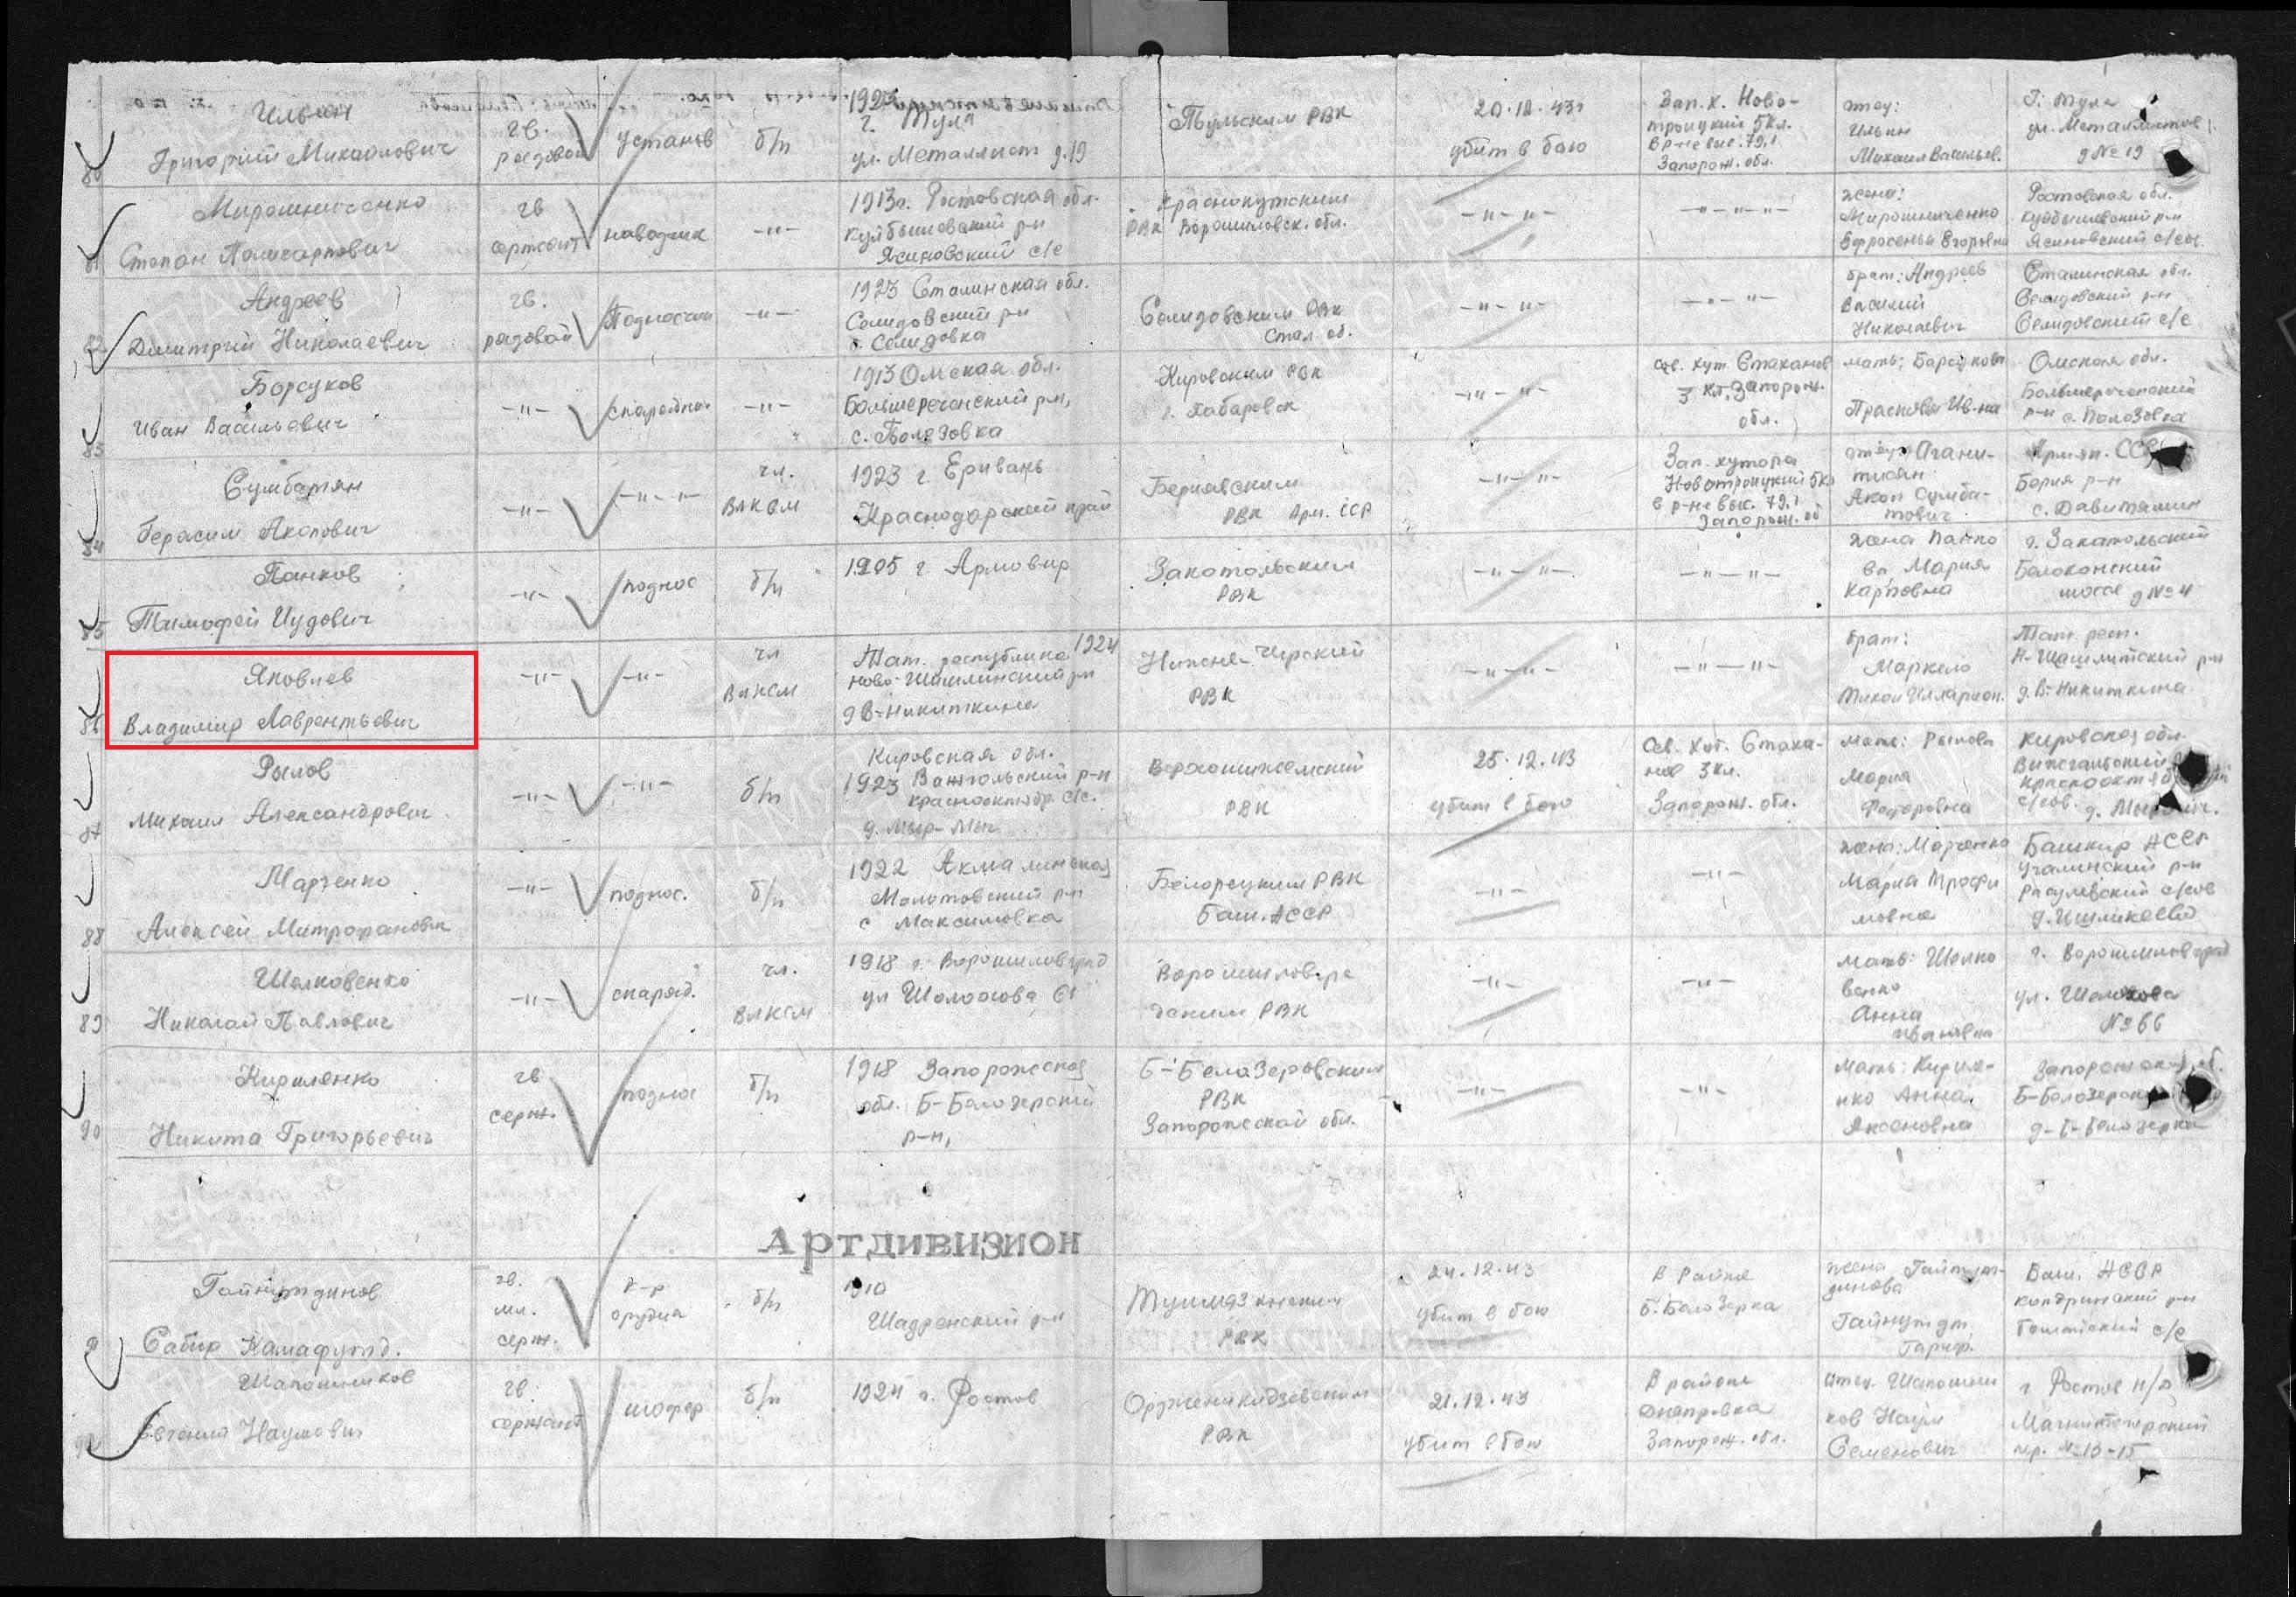 Ильин
Григорий Михайлович
гв.
рядовой
установ
б/п
1923
г. Тула
ул. Металлист д.19
Тульским РВК
20.12.43г
убит в бою
Зап. х. Ново-
троицкий 5кл.
в р-не выс. 79,1
Запорож. обл.
отец:
Ильин
Михаил Васильев.
Г. Тула
ул. Металлистов
д № 19
81
Мирошниченко
Степан Поликарпович
гв
сержант
наводчик
—"—
1913г. Ростовская обл.
Куйбышевский р-н
Ясиновский с/с
Краснокутским
РВК Ворошиловск. обл.
—"—"—
—"—"—
жена:
Мирошниченко
Ефросенья Егоровна
Ростовская обл.
Куйбышевский р-н
Ясиновский с/сов.
82
Андреев
Дмитрий Николаевич
гв.
рядовой
Подносчик
—"—
1923 Сталинская обл.
Селидовский р-н
с. Селидовка
Селидовским РВК
Стал об.
—"—"—
—"—"—
брат: Андреев
Василий
Николаевич
Сталинская обл.
Селидовский р-н
Селидовский с/с
83
Борсуков
Иван Васильевич
—"—
—"—
1913 Омская обл.
Большереченский р-н,
с. Полезовка
Кировским РВК
г. Хабаровск
—"—"—
Сев. хут Стаханов
3 кл. Запорож.
обл.
мать: Барсукова
Прасковья Ив-на
Омская обл.
Большереченский
р-н с. Полозовка
84
Сумбатян
Герасим Акопович
—"—
—"—"—
чл.
ВЛКСМ
1923 г Еривань
Краснодарский край
РВК Арм. ССР
—"—"—
Зап. хутора
Новотроицкий 5кл
в р-не выс. 79,1
Запорож. об
Акоп Сумба-
тович
Армян. ССР
с. Давиташен
85
Панков
Тимофей Иудович
—"—
поднос
б/п
1905 г Армовир
Закотальским
РВК
—"—"—
—"—"—
жена Панко
ва Мария
Карповна
г. Закатальский
Белоконский
шоссе д № 4
86
Яковлев
Владимир Лаврентьевич
—"—
—"—
чл
ВЛКСМ
Тат. республика 1924
Ново-Шишминский р-н
д В-Никиткина
Нижне-Чирский
РВК
—"—"—
—"—"—
брат:
Маркело
Тихон Илларион.
Тат. респ.
Н-Шашлитский р-н
д. В-Никиткина
87
Рылов
Михаил Александрович
—"—
—"—
б/п
Кировская обл.
1923 Вожгальский р-н
Краснооктябр с/с.
д. Мыр-Мыг
Верхошижемский
РВК
25.12.43
убит в бою
Сев. хут. Стаха-
нов 3кл.
Запорож. обл.
мать: Рылова
Мария
Федоровна
Кировская обл
Вожгальский
Краснооктяб
с/сов.
88
Марченко
Алексей Митрофанович
—"—
поднос.
б/п
1922 Акмалинская
Молотовский р-н
с Максимовка
Белорецким РВК
Баш. АССР
—"—
—"—
жена: Марченко
Мария Трофи
мовна
Башкир АССР
Учалинский р-н
Расулевский с/сов
д. Ишмикеева
89
Шелковенко
Николай Павлович
—"—
снаряд.
чл.
ВЛКСМ
1918 г. Ворошиловград
ул Шолохова 61
Ворошиловгра
дским РВК
—"—
—"—
мать: Шелко
венко
Анна
Ивановна
г. Ворошиловград
ул. Шолохова
№ 66
90
Кириленко
Никита Григорьевич
гв
серж.
поднос
б/п
1918 Запорожская
обл. Б-Белозерский
р-н,
Б-Белазеровским
РВК
Запорожской обл.
—"—
—"—
мать: Кирил-
нко Анна
Аксеновна
Запорожская об.
Б-Белозерский
д-Б-Белозерка
Артдивизион
91
Гайнутдинов
Сабир Камафутд.
гв.
мл.
серж.
к-р
орудия
б/п
1910
Шадренский р-н
Туймазинским
РВК
24.12.43
убит в бою
В районе
Б. Белозерка
жена Гайнут-
динова
Гайнутдт
Гариф.
Баш. АССР
Кандринский р-н
с/с
92
Шапошников
Евгений Наумович
гв.
сержант
шофер
б/п
1924 г. Ростов
Орджоникидзевским
РВК
21.12.43
убит в бою
В районе
Днепровка
Запорож. обл.
отец. Шапошни
ков Наум
Семенович
г Ростов н/д
Магнитогорский
пер. № 13-15